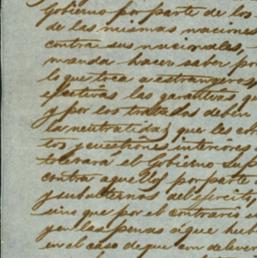 Gobierno por parte de los
de las mismas naciones
contra sus nacionales,
manda hacer saber por
lo que toca a estrangeros,
efectivas las garantias, q
y por los tratados deben
la neutralidad que les
tos y cuestiones interiores
tolerara el Gobierno Sup
contra aquellos por parte
y subalternos del ejercito,
sino que por el contrario
y en las penas á que
en el caso de que con